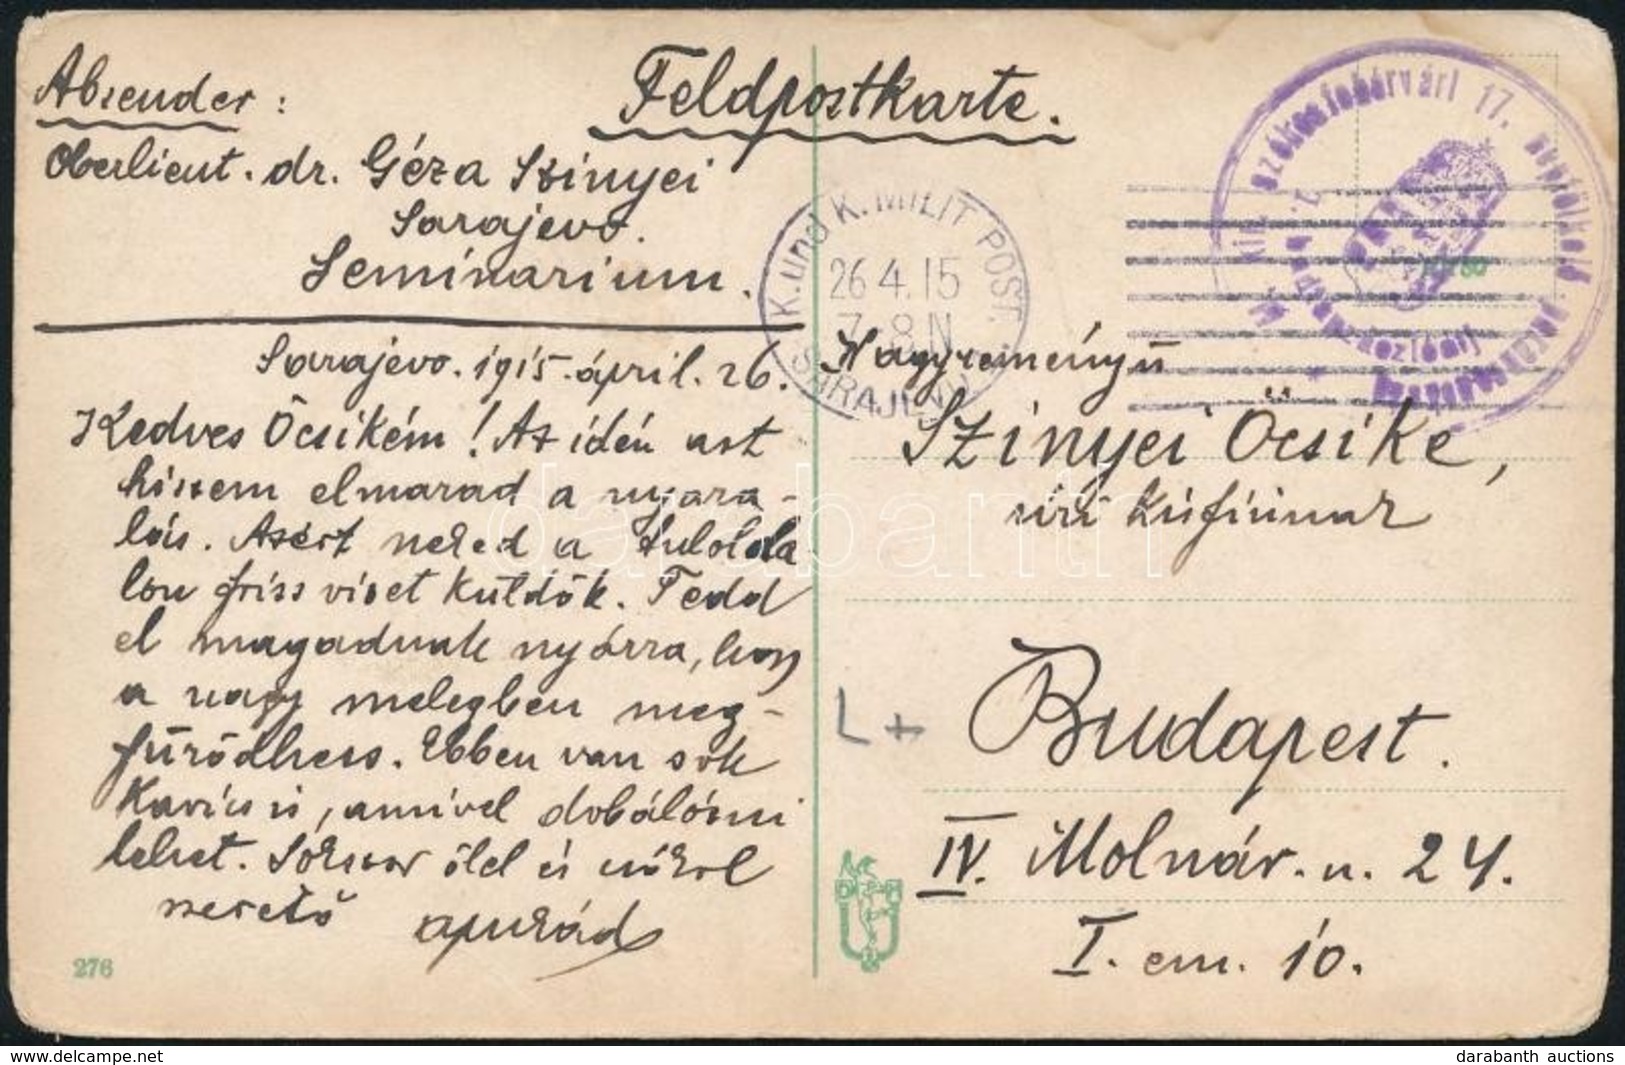 Absender:
Oberlieut. dr. Géza Szinyei
Sarajevo.
Seminarium.
Feldpostkarte.
K. und K. MILIT. POST.
26 4.15
7-8 N
SARAJEVO
M. kir. székesfehérvári 17. népfölkelő
Sarajevo. 1915. ápril. 26.
Kedves Öcsikém! Az idén azt
hiszem elmarad a nyara-
lás. Azért neked a tulolda-
lon friss vizet küldök. Tedd
el magadnak nyárra, hogy
a nagy melegben meg-
fürödhess. Ebben van sok
kavics is, amivel dobálózni
lehet. Sokszor ölel és csókol
szerető apukád
276
Nagyreményű
Szinyei Öcsike,
úri
Budapest.
IV. Molnár. u. 24.
I. em. 10.
L +
darabanth
hipposcards.com
darabanth auctions